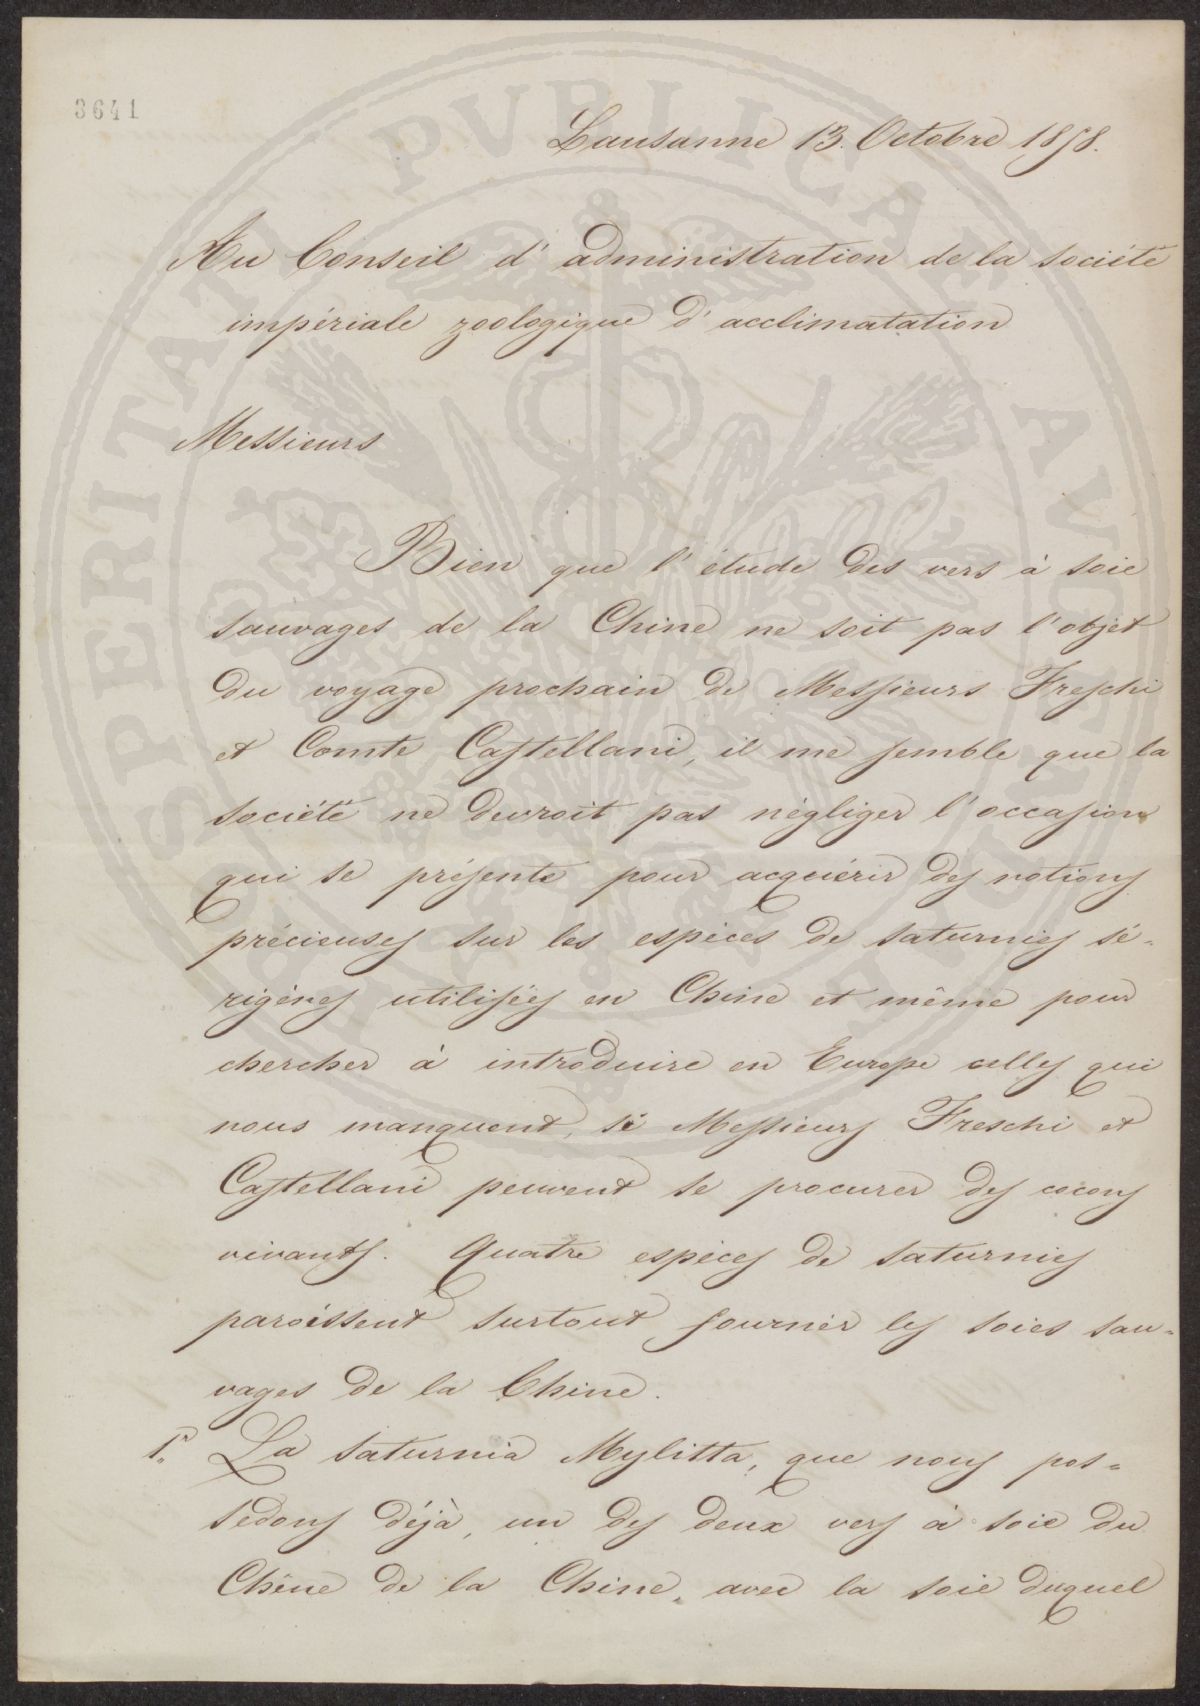 3641
Lausanne 13. Octobre 1858.
Au Conseil d'administration de la société
impériale zoologique d'acclimatation
Messieurs
Bien que l'étude des vers à soie
sauvages de la Chine ne soit pas l'objet
du voyage prochain de Messieurs Freschi
et Comte Castellani, il me semble que la
société ne devroit pas négliger l'occasion
qui se présente pour acquérir des notions
précieuses sur les espèces de saturnies sé-
rigènes utilisées en Chine et même pour
chercher à introduire en Europe celles qui
nous manquent, si Messieurs Freschi et
Castellani peuvent se procurer des cocons
vivants. Quatre espèces de saturnies
paroissent surtout fournir les soies sau-
vages de la Chine.
1°. La saturnia Mylitta, que nous pos-
sédons déjà, un des deux vers à soie du
Chêne de la Chine, avec la soie duquel